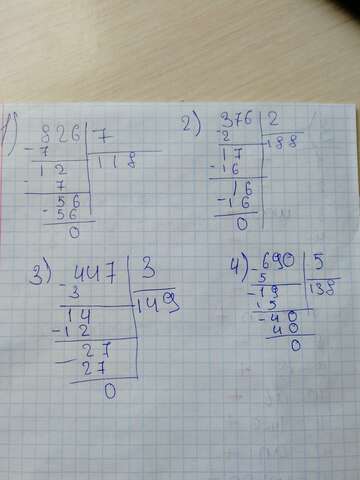 1) 826 | 7
- 7 | 118
12
- 7
56
- 56
0
2) 376 | 2
- 2 | 188
17
- 16
16
- 16
0
3) - 447 | 3
3 | 149
14
- 12
- 27
27
0
4) - 690 | 5
5 | 138
- 19
15
- 40
40
0